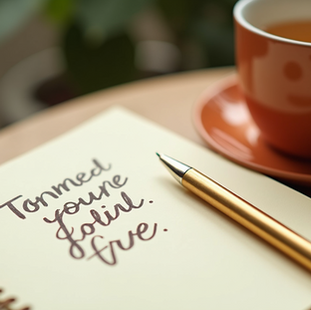 Tonmed
youne
foliril.
fre.